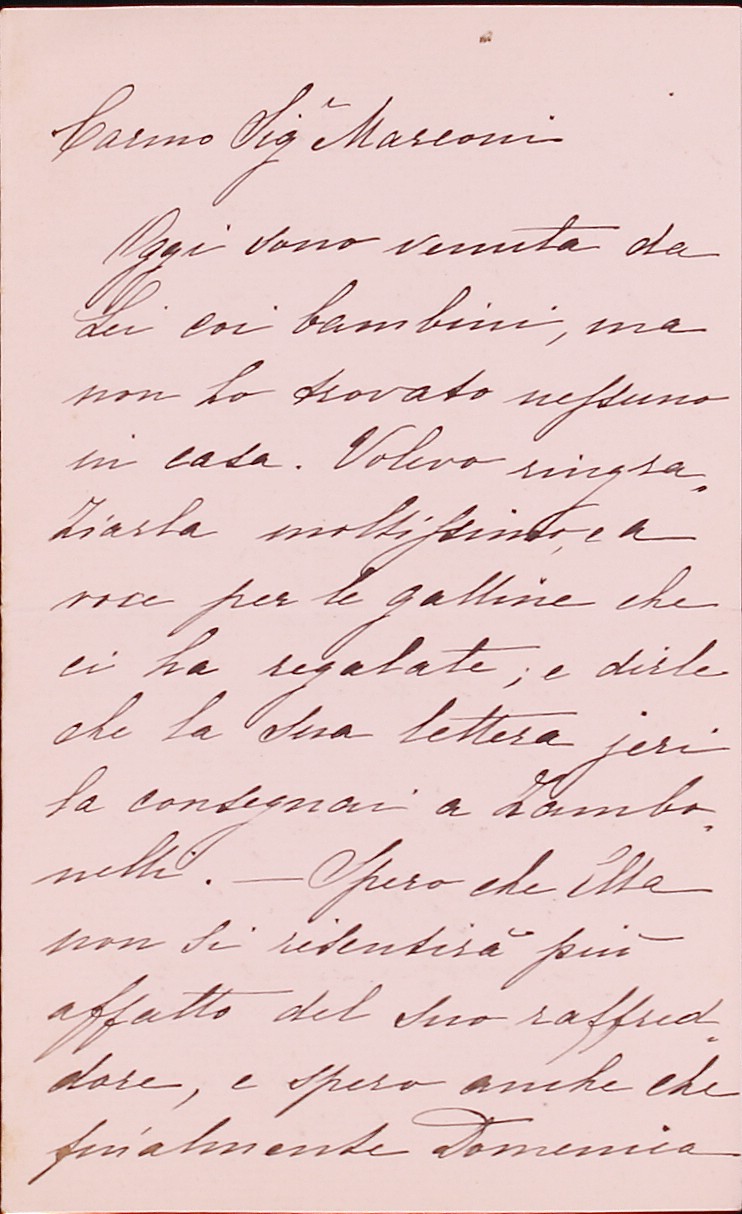 Carmo Sigr Marconi
Oggi sono venuta da
Lei coi bambini, ma
non ho trovato nessuno
in casa. Volevo ringra„
ziarla moltissimo, e a
voce per le galline che
ci ha regalate; e dirle
che la sua lettera jeri
la consegnai a Zambo„
nelli. — Spero che Ella
non si risentirà più
affatto del suo raffred„
dore, e spero anche che
finalmente Domenica